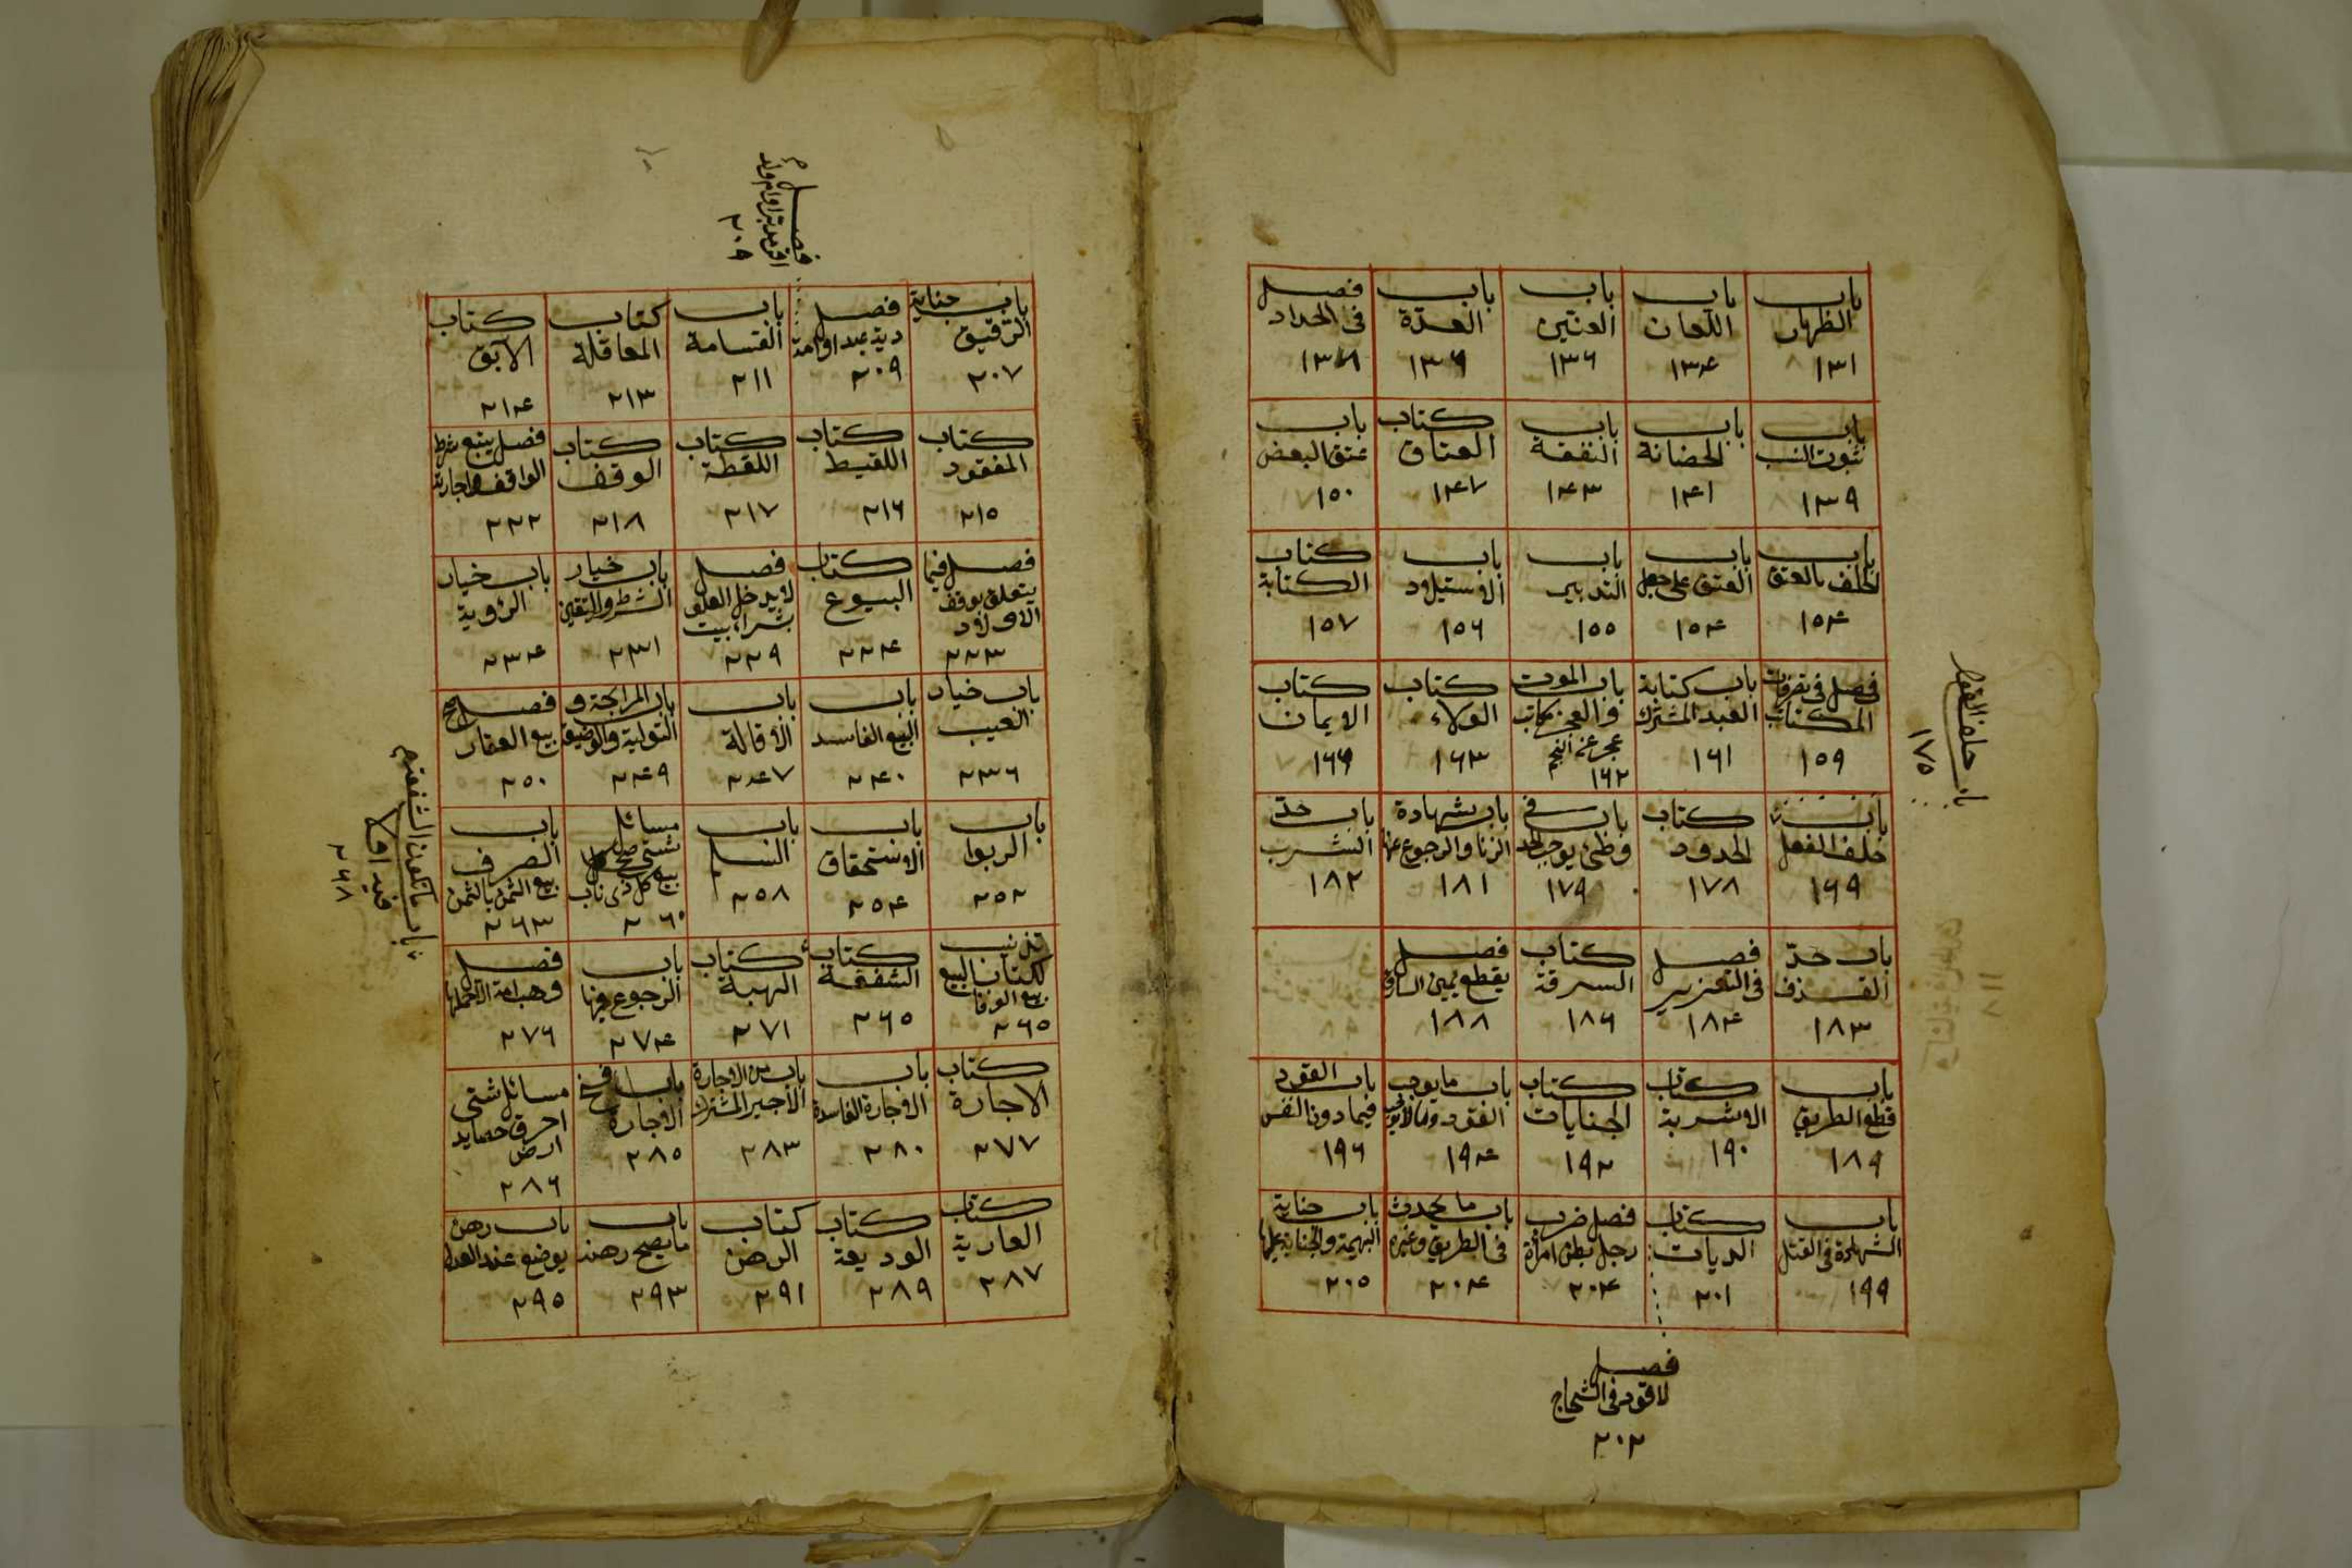 باب الظهار ١٣١
باب اللعان ١٣٤
باب العنين ١٣٦
باب العدة ١٣٦
فصل في الحداد ١٣٨
باب ثبوت النسب ١٣٩
باب الحضانة ١٤١
باب النفقة ١٤٣
كتاب العتاق ١٤٧
باب عتق البعض ١٥٠
باب الحلف بالعتق ١٥٤
باب العتق على جعل ١٥٤
باب التدبير ١٥٥
باب الاستيلاد ١٥٦
كتاب الكتابة ١٥٧
فصل في تصرفات المكاتب ١٥٩
باب كتابة العبد المشترك ١٦١
باب الموت والعجز مكاتب عجز عن النجم ١٦٢
كتاب الولاء ١٦٣
كتاب الايمان ١٦٦
باب حلف القول ١٧٥
باب حلف الفعل ١٦٩
كتاب الحدود ١٧٨
باب في وطئ يوجب الحد ١٧٩
باب شهادة الزنا والرجوع عنها ١٨١
باب حدّ الشرب ١٨٢
باب حدّ القذف ١٨٣
فصل في التعزير ١٨٤
كتاب السرقة ١٨٦
فصل يقطع يمين السارق ١٨٨
باب قطع الطريق ١٨٩
كتاب الاشربة ١٩٠
كتاب الجنايات ١٩٢
باب ما يوجب القود وما لا يوجب ١٩٤
باب القود فيما دون النفس ١٩٦
باب الشهادة في القتل ١٩٩
كتاب الديات ٢٠١
فصل ضرب رجل بطن امرأة ٢٠٤
باب ما يحدث في الطريق وغيره ٢٠٤
باب جناية البهيمة والجناية عليها ٢٠٥
فصل
لا قود في الشجاج
٢٠٢
فصل
٢٠٩
باب جناية الرقيق ٢٠٧
فصل دية عبد او امة ٢٠٩
باب القسامة ٢١١
كتاب المعاقلة ٢١٣
كتاب الآبق ٢١٤
كتاب المفقود ٢١٥
كتاب اللقيط ٢١٦
كتاب اللقطة ٢١٧
كتاب الوقف ٢١٨
فصل يتبع شرط الواقف في اجارته ٢٢٢
فصل فيما يتعلق بوقف الاولاد ٢٢٣
كتاب البيوع ٢٢٤
فصل لا يدخل العلو بشراء بيت ٢٢٩
باب خيار الشرط والتعيين ٢٣١
باب خيار الرؤية ٢٣٤
باب خيار العيب ٢٣٦
باب البيع الفاسد ٢٤٠
باب الاقالة ٢٤٧
باب المرابحة و التولية والوضيعة ٢٤٩
فصل صح بيع العقار ٢٥٠
باب الربوا ٢٥٢
باب الاستحقاق ٢٥٤
باب السلم ٢٥٨
مسائل شتى صح بيع كل ذي ناب ٢٦٠
باب الصرف بيع الثمن بالثمن ٢٦٣
تذنيب لكتاب البيع بيع الوفا ٢٦٥
كتاب الشفعة ٢٦٥
كتاب الهبة ٢٧١
باب الرجوع فيها ٢٧٤
فصل وهب امة الا حملها ٢٧٦
باب ما تكون الشفعة
فيه او لا
٢٦٨
كتاب الاجارة ٢٧٧
باب الاجارة الفاسدة ٢٨٠
باب من الاجارة الاجير المشترك ٢٨٣
باب فسخ الاجارة ٢٨٥
مسائل شتى احرق حصايد ارض ٢٨٦
كتاب العارية ٢٨٧
كتاب الوديعة ٢٨٩
كتاب الرهن ٢٩١
باب ما يصح رهنه ٢٩٣
باب رهن يوضع عند العدل ٢٩٥